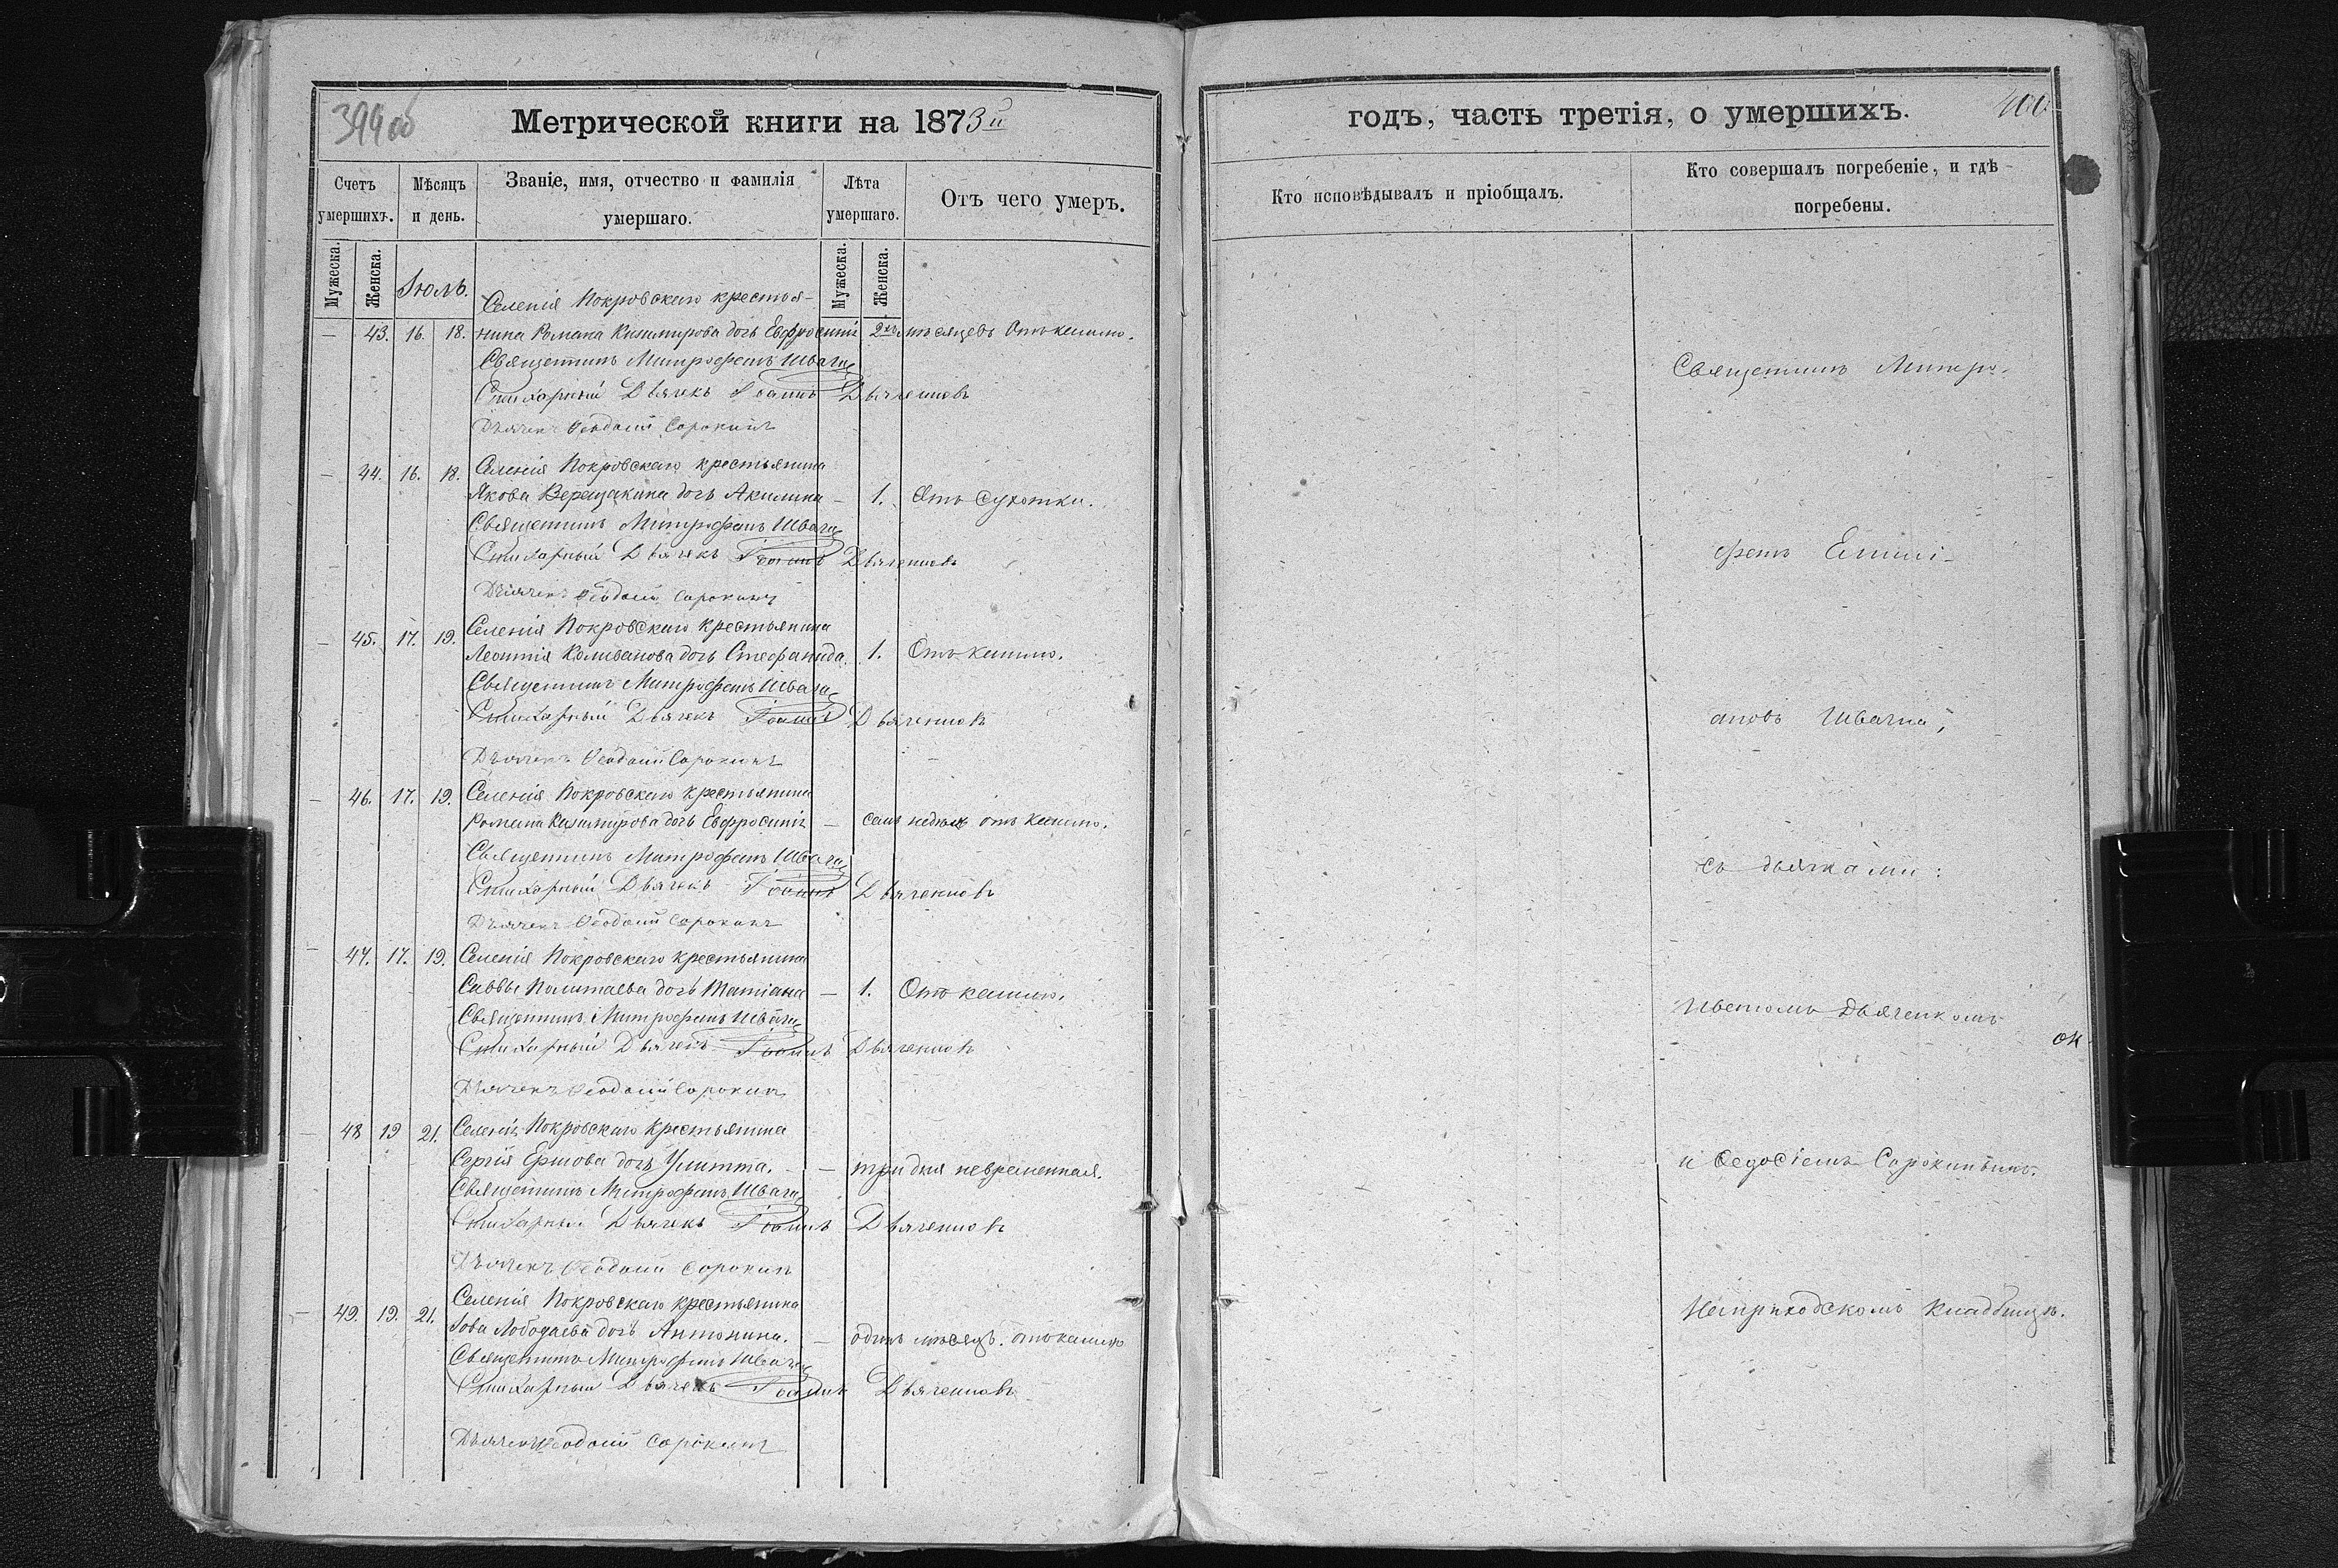 399 об
Метрической книги на 1873й
Счетъ умершихъ.
Мѣсяцъ и день.
Званіе, имя, отчество и фамилія умершаго.
Лѣта умершаго.
Отъ чего умеръ.
Мужеска.
Женска.
Іюль.
Мужеска.
Женска.
Селенія Покровскаго крестья-
— 43. 16. 18. нина Романа Казимирова дочь Евфросинія 2хъ мѣсяцевъ Отъ кашлю.
Священникъ Митрофанъ Швачка
Стихарный Дьячекъ Іоаннъ Дьяченковъ
Дьячекъ Ѳеодосій Сорокинъ
— 44. 16. 18. Селенія Покровскаго крестьянина
Якова Верещакина дочь Акилина — 1. Отъ сухотки.
Священникъ Митрофанъ Швачка
Стихарный Дьячекъ Іоаннъ Дьяченковъ
Дьячекъ Ѳеодосій Сорокинъ
— 45. 17. 19. Селенія Покровскаго крестьянина
Леонтія Коливанова дочь Стефанида. 1. Отъ кашлю.
Священникъ Митрофанъ Швачка
Стихарный Дьячекъ Іоаннъ Дьяченковъ
Дьячекъ Ѳеодосій Сорокинъ
— 46. 17. 19. Селенія Покровскаго крестьянина
Романа Казимирова дочь Евфросинія — семь недѣль отъ кашлю.
Священникъ Митрофанъ Швачка
Стихарный Дьячекъ Іоаннъ Дьяченковъ
Дьячекъ Ѳеодосій Сорокинъ
— 47. 17. 19. Селенія Покровскаго крестьянина
Саввы Полтаева дочь Татіана — 1. Отъ кашлю.
Священникъ Митрофанъ Швачка
Стихарный Дьячекъ Іоаннъ Дьяченковъ
Дьячекъ Ѳеодосій Сорокинъ
— 48 19 21. Селенія Покровскаго крестьянина
Сергія Ершова дочь Улитта. — три дня невременная.
Священникъ Митрофанъ Швачка
Стихарный Дьячекъ Іоаннъ Дьяченковъ
Дьячекъ Ѳеодосій Сорокинъ
Селенія Покровскаго крестьянина
— 49. 19. 21. Іова Лободаева дочь Антонина. — одинъ мѣсяцъ. отъ кашлю
Священникъ Митрофанъ Швачка
Стихарный Дьячекъ Іоаннъ Дьяченковъ
Дьячекъ Ѳеодосій Сорокинъ
годъ, часть третія, о умершихъ.
400
Кто исповѣдывалъ и пріобщалъ.
Кто совершалъ погребеніе, и гдѣ погребены.
Священникъ Митро-
фанъ Епифі-
ановъ Швачка,
съ дьячками:
Дьяченкомъ
и Ѳедосіемъ Сорокинымъ.
На приходскомъ кладбищѣ.